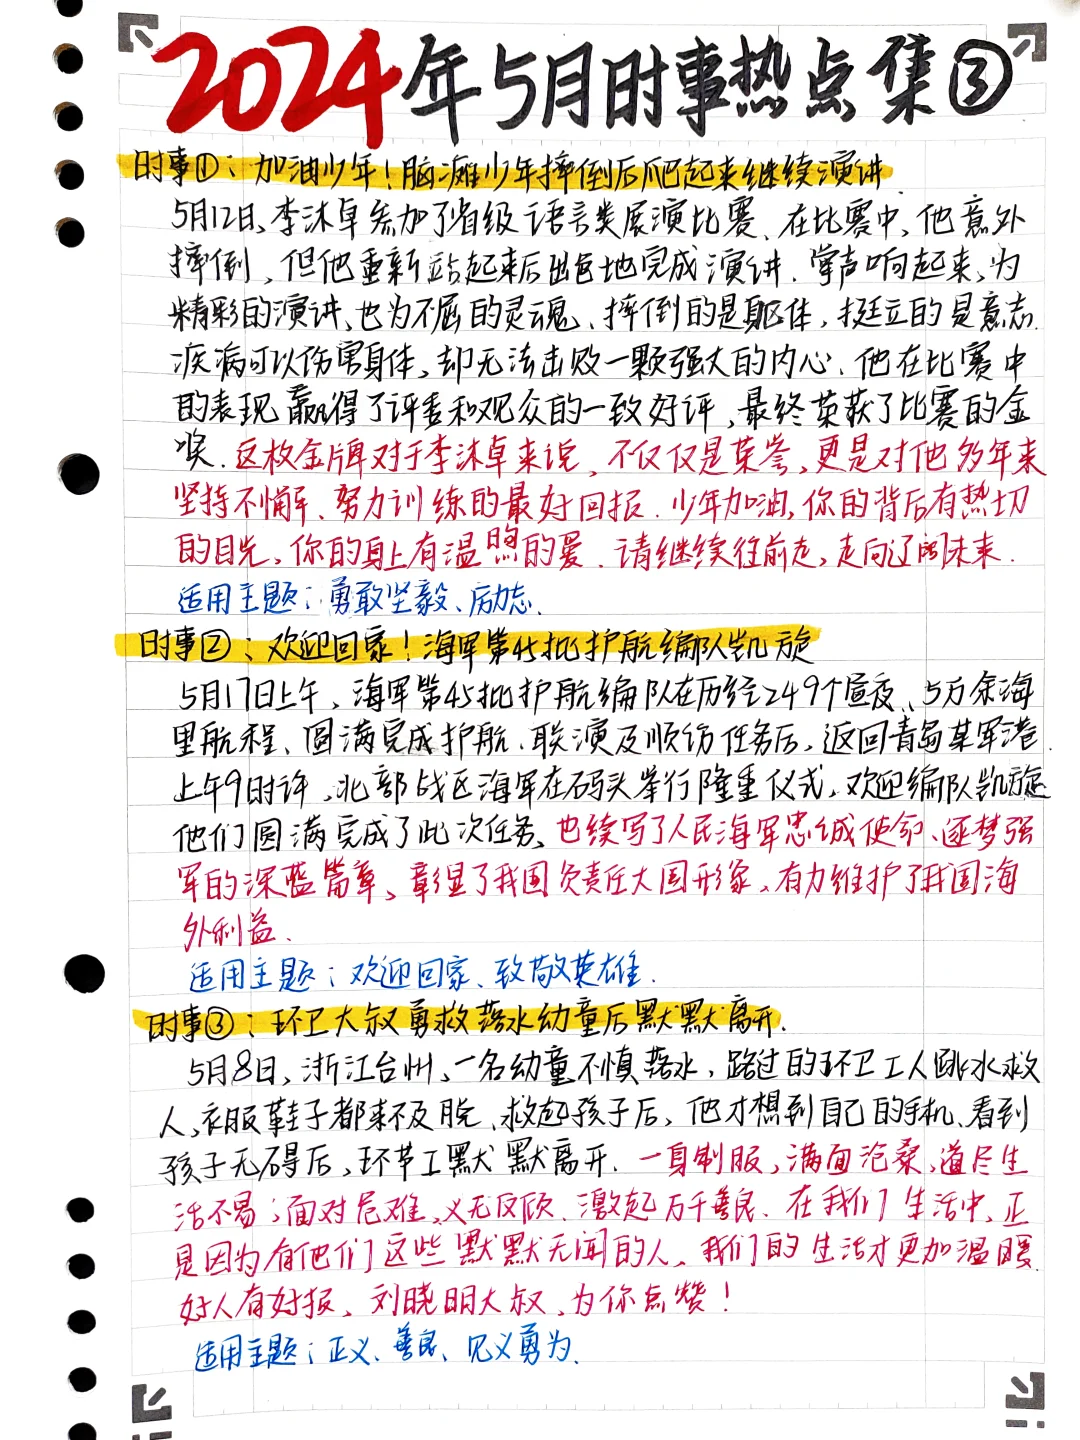 2024年5月时事热点集③
时事①：加油少年！脑瘫少年摔倒后爬起来继续演讲
5月12日，李沐卓参加了省级语言类展演比赛、在比赛中，他意外
摔倒，但他重新站起来后出色地完成演讲．掌声响起来，为
精彩的演讲、也为不屈的灵魂、摔倒的是躯体，挺立的是意志．
疾病可以伤害身体，却无法击败一颗强大的内心．他在比赛中
的表现赢得了评委和观众的一致好评，最终荣获了比赛的金
奖．这枚金牌对于李沐卓来说，不仅仅是荣誉，更是对他多年来
坚持不懈、努力训练的最好回报．少年加油，你的背后有热切
的目光，你的身上有温煦的爱．请继续往前走，走向辽阔未来．
适用主题：勇敢坚毅、励志．
时事②：欢迎回家！海军第45批护航编队凯旋
5月17日上午，海军第45批护航编队在历经249个昼夜、5万余海
里航程、圆满完成护航、联演及顺访任务后，返回青岛某军港．
上午9时许，北部战区海军在码头举行隆重仪式，欢迎编队凯旋
他们圆满完成了此次任务，也续写了人民海军忠诚使命、逐梦强
军的深蓝篇章，彰显了我国负责任大国形象，有力维护了我国海
外利益．
适用主题：欢迎回家、致敬英雄．
时事③：环卫大叔勇救落水幼童后默默离开．
5月8日，浙江台州，一名幼童不慎落水，路过的环卫工人跳水救
人，衣服鞋子都来不及脱、救起孩子后，他才想到自己的手机、看到
孩子无碍后，环节工默默离开．一身制服，满面沧桑，道尽生
活不易；面对危难，义无反顾、激起万千善良．在我们生活中，正
是因为有他们这些默默无闻的人，我们的生活才更加温暖．
好人有好报，刘晓明大叔，为你点赞！
适用主题：正义、善良、见义勇为．